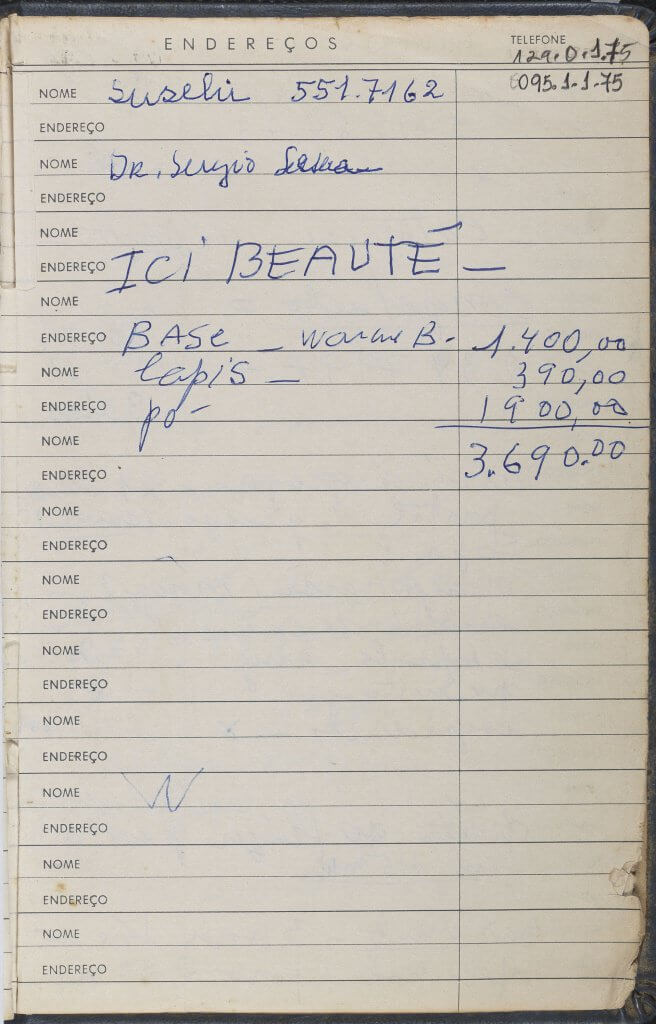 ENDEREÇOS TELEFONE
129.0.1.75
095.1.1.75
NOME Suseli 551.7162
ENDEREÇO
NOME Dr. Sergio
ENDEREÇO
NOME
ENDEREÇO ICI BEAUTÉ -
NOME
ENDEREÇO BASE - B - 1.400,00
NOME lapis - 390,00
ENDEREÇO pó - 1900,00
NOME 3.690.00
ENDEREÇO
NOME
ENDEREÇO
NOME
ENDEREÇO
NOME
ENDEREÇO
NOME
ENDEREÇO
NOME
ENDEREÇO
NOME
ENDEREÇO
NOME
ENDEREÇO